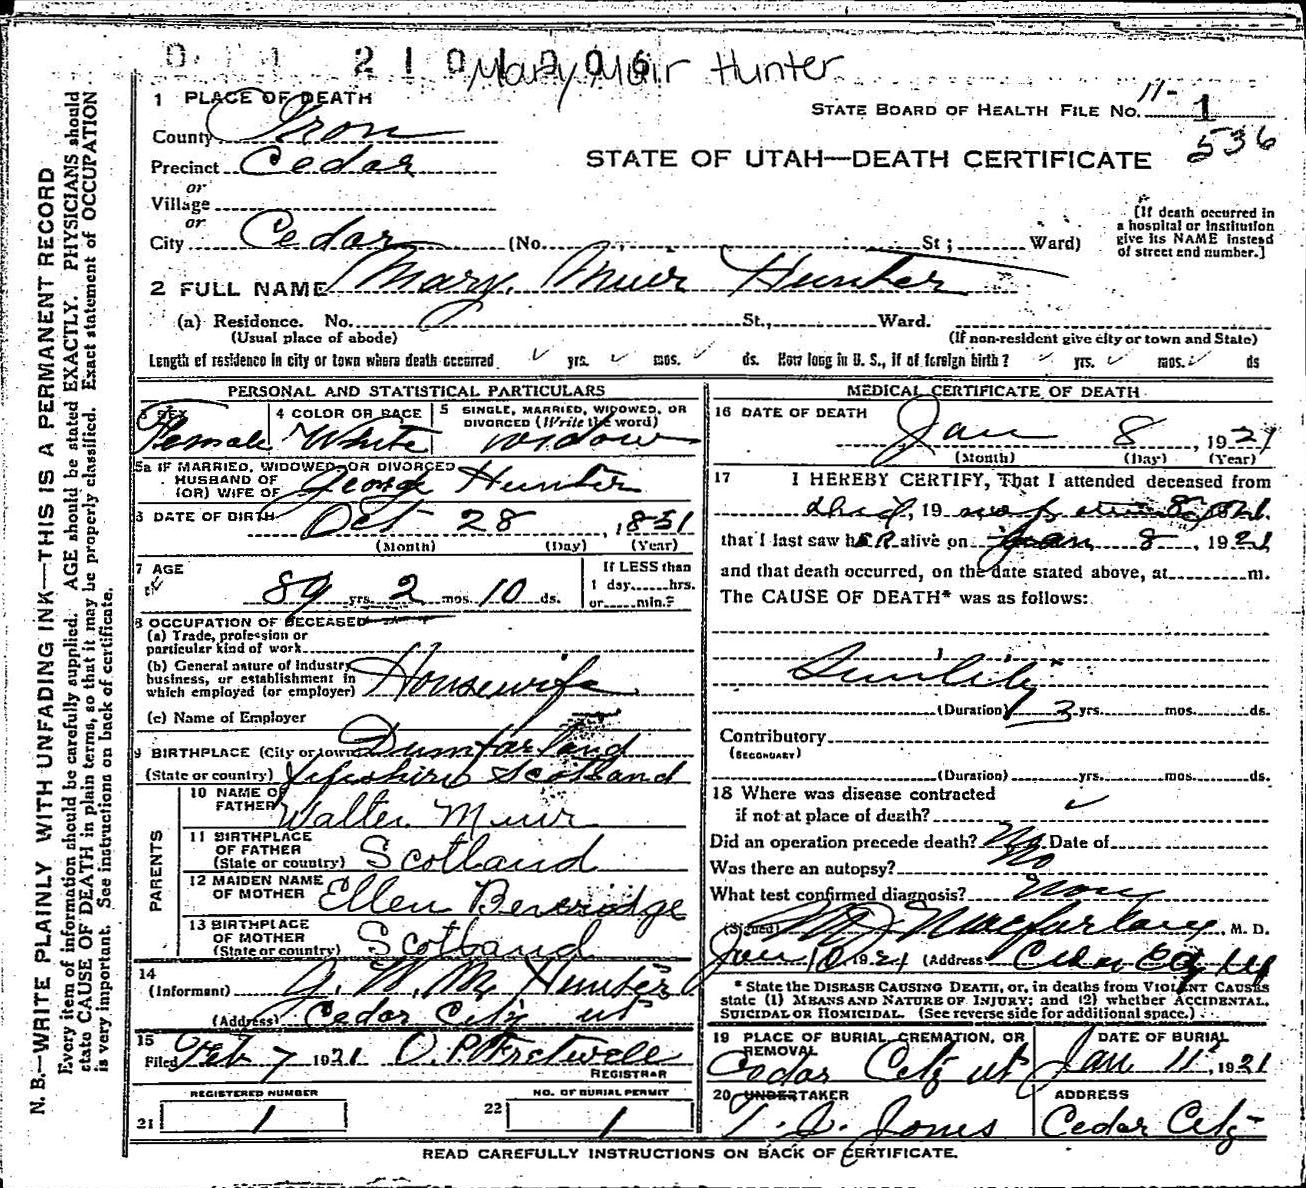 2 1 0 1 0 0 6 Mary Muir Hunter
1 PLACE OF DEATH
STATE BOARD OF HEALTH FILE No. 11- 1
536
County Iron
STATE OF UTAH—DEATH CERTIFICATE
Precinct Cedar
or
Village
or
City Cedar (No. St.; Ward)
[If death occurred in
a hospital or institution
give its NAME instead
of street and number.]
2 FULL NAME Mary Muir Hunter
(a) Residence. No. St., Ward.
(Usual place of abode) (If non-resident give city or town and State)
Length of residence in city or town where death occurred yrs. mos. ds. How long in U. S., if of foreign birth? yrs. mos. ds
PERSONAL AND STATISTICAL PARTICULARS
3 SEX Female
4 COLOR OR RACE White
5 SINGLE, MARRIED, WIDOWED, OR
DIVORCED (Write the word)
widow
5a IF MARRIED, WIDOWED, OR DIVORCED
HUSBAND OF
(OR) WIFE OF George Hunter
6 DATE OF BIRTH Oct 28, 1831
(Month) (Day) (Year)
7 AGE
89 yrs. 2 mos. 10 ds.
If LESS than
1 day hrs.
or min.?
8 OCCUPATION OF DECEASED
(a) Trade, profession or
particular kind of work
(b) General nature of industry,
business, or establishment in
which employed (or employer) Housewife
(c) Name of Employer
9 BIRTHPLACE (City or town) Dumfarland
(State or country) Scotland
PARENTS
10 NAME OF
FATHER Walter Muir
11 BIRTHPLACE
OF FATHER
(State or country) Scotland
12 MAIDEN NAME
OF MOTHER Ellen Beveridge
13 BIRTHPLACE
OF MOTHER
(State or country) Scotland
14
(Informant) Hunter
(Address) Cedar City ut
15
Filed Feb 7 1921 O. P. Fretwell
REGISTRAR
REGISTERED NUMBER
21 1
NO. OF BURIAL PERMIT
22 1
MEDICAL CERTIFICATE OF DEATH
16 DATE OF DEATH
Jan 8, 1921
(Month) (Day) (Year)
17 I HEREBY CERTIFY, That I attended deceased from
, 19
that I last saw hER alive on Jan 8, 1921
and that death occurred, on the date stated above, at m.
The CAUSE OF DEATH* was as follows:
(Duration) 3 yrs. mos. ds.
Contributory
(SECONDARY)
(Duration) yrs. mos. ds.
18 Where was disease contracted
if not at place of death?
Did an operation precede death? No Date of
Was there an autopsy? No
What test confirmed diagnosis?
(Signed) Macfarlane, M. D.
Jan 10 1921 (Address) Cedar City
* State the DISEASE CAUSING DEATH, or, in deaths from VIOLENT CAUSES
state (1) MEANS AND NATURE OF INJURY; and (2) whether ACCIDENTAL,
SUICIDAL OR HOMICIDAL. (See reverse side for additional space.)
19 PLACE OF BURIAL, CREMATION, OR
REMOVAL
Cedar City ut
DATE OF BURIAL
Jan 11, 1921
20 UNDERTAKER
T. J. Jones
ADDRESS
Cedar City
READ CAREFULLY INSTRUCTIONS ON BACK OF CERTIFICATE.
N. B.—WRITE PLAINLY WITH UNFADING INK—THIS IS A PERMANENT RECORD
Every item of information should be carefully supplied. AGE should be stated EXACTLY. PHYSICIANS should
state CAUSE OF DEATH in plain terms, so that it may be properly classified. Exact statement of OCCUPATION
is very important. See instructions on back of certificate.